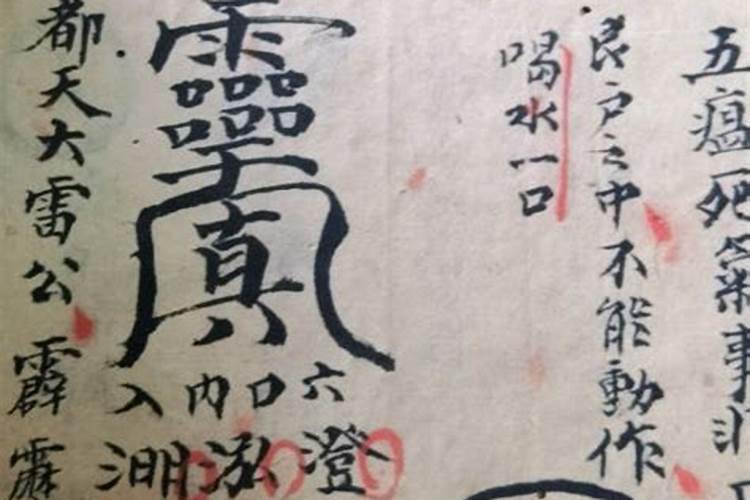 五瘟死氣事非
艮户之中不能動作
喝水一口
真
六口内入
澄泓淜
都天大雷公霹靂